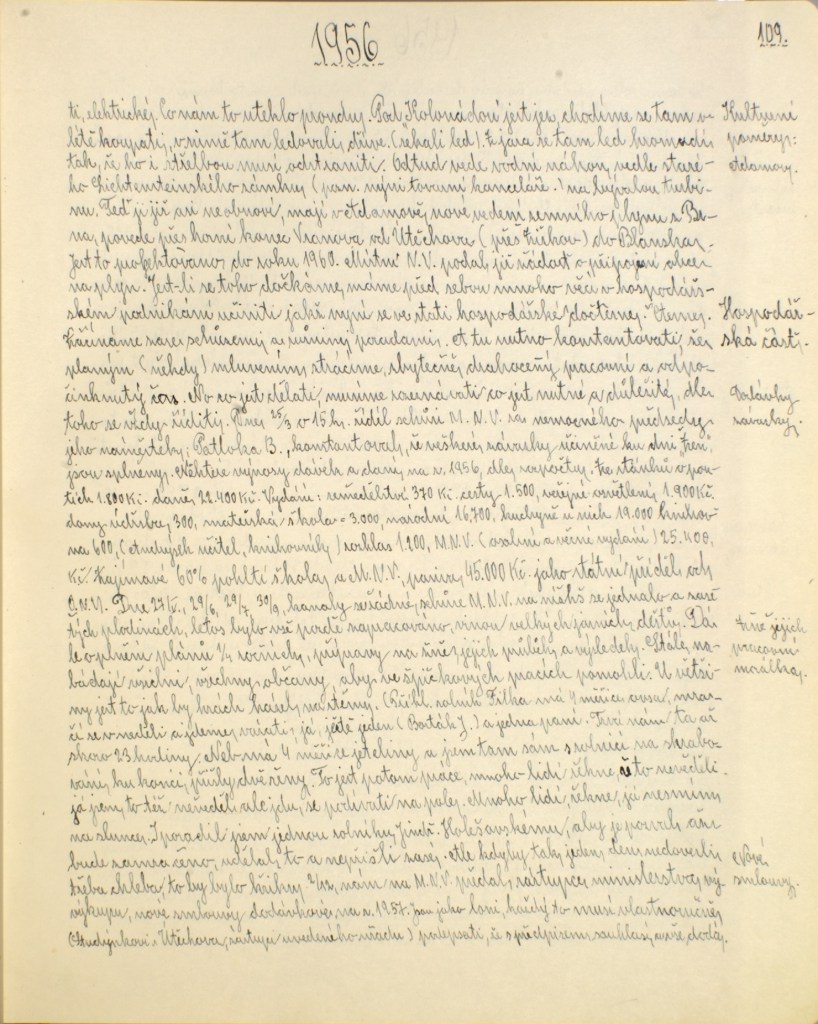 1956
109.
ti, elektrickej. Co nám to uteklo proudu. Pod Kolonádou jest jez, chodíme se tam v
létě koupati, v zimě tam ledovali, dříve. (sekali led). Z jara se tam led hromadí,
tak, že ho i střelbou musí odstraniti. Odtud vede vodní náhon, vedle staré-
ho Lichtensteinského zámku, (pan. nyní tovární kanceláře.) na bývalou turbi-
nu. Teď ji již asi neobnoví, mají v Adamově, nové vedení zemního plynu z Br-
na, povede přes horní konec Vranova od Útěchova (přes Žižkov) do Blanska.
Jest to projektováno, do roku 1960. Místní N.V. podal, již žádost o připojení obce
na plyn. Jest-li se toho dočkáme, máme před sebou mnoho věcí v hospodářs-
ském podnikání učiniti jakž nyní se ve stati hospodářské dočteme.
Začínáme zase schůzemi a různými poradami. A tu nutno konstantovati, že
planým (někdy) mluvením, ztrácíme, zbytečně, drahocený pracovní a odpo-
činkový čas. No co jest dělati, musíme uznávati co jest nutné a důležité, dle
toho se vždy říditi. Dnes 25/3 o 15 h. řídil schůzi M.N.V. za nemocného předsedy,
jeho náměstek, Patloka B., konstantoval, že veškeré závazky učiněné ku dni žen,
jsou splněny. Některé výnosy dávek a daní, na r. 1956, dle rozpočtu.
tích 1.800 Kč. daně, 22.400 Kč. Vydání: zemědělství 370 Kč. cesty 1.500, veřejné osvětlení, 1.900 Kč.
domy údržba, 300, mateřská škola = 3.000, národní 16.700, kuchyně u nich 19.000 knihov-
na 600, (studující učitel, knihovníky) rozhlas 1.200, M.N.V. (osobní a věcné vydání) 25.400,
Kč. Zajímavé 60% pohltí škola, a M.N.V., paním, 45.000 Kč. jako státní příděl, od
O.N.V. Dne 27/5, 29/6, 29/7, 30/9, konaly se řádné, schůze M.N.V. na nichž se jednalo o zase-
tých plodinách, letos bylo vše pozdě zapracováno, vinou velkých jarních, dešťů. Dá-
le o plnění plánů 1/4 ročních, přípravy na žně, jejich průběh, a výsledek. Stále na-
bádají všichni, všechny občany, aby ve špičkových pracích pomohli. U větši-
ny jest to jak by hrách házel, na stěnu. (Příkl. rolník Filka má 4 měřice ovsa, mra-
čí se v neděli a jdeme, vázati, já, ještě jeden (Barták J.) a jedna paní. Trvá nám to až
skoro 23 hodiny. Neb má 4 měřice jeteliny, a jsem tam sám s rolnicí na shrabo-
vání, ku konci, přišly dvě ženy. To jest potom práce, mnoho lidí, řekne, že to nevěděli.
já jsem, to též nevěděl, ale jdu, se podívati na pole. Mnoho lidí, řekne, já nesmím,
na slunce. I poradil jsem jednou rolníku, Jindř. Holešovskému, aby je pozval, až
bude zamračeno, udělal, to a nepřišli zase. Ale kdyby tak, jeden, den, nedovezli,
třeba chleba, to by bylo křiku. 2/12, nám na M.N.V. předal, zástupce, ministerstva, vý-
výkupu, nové smlouvy dodávkové, na r. 1957. Jsou jako loni, každý to musí vlastnoručně,
(Studýnkovi z Útěchova, zástupci uvedeného úřadu) podepsati, že s předpisem, souhlasí, a vše, dodá,
Kulturní
poměry:
Adamov.
Hospodář-
ská část.
Dodávky
závazky.
Žně jejich
pracovní
morálka.
Nové
smlouvy.